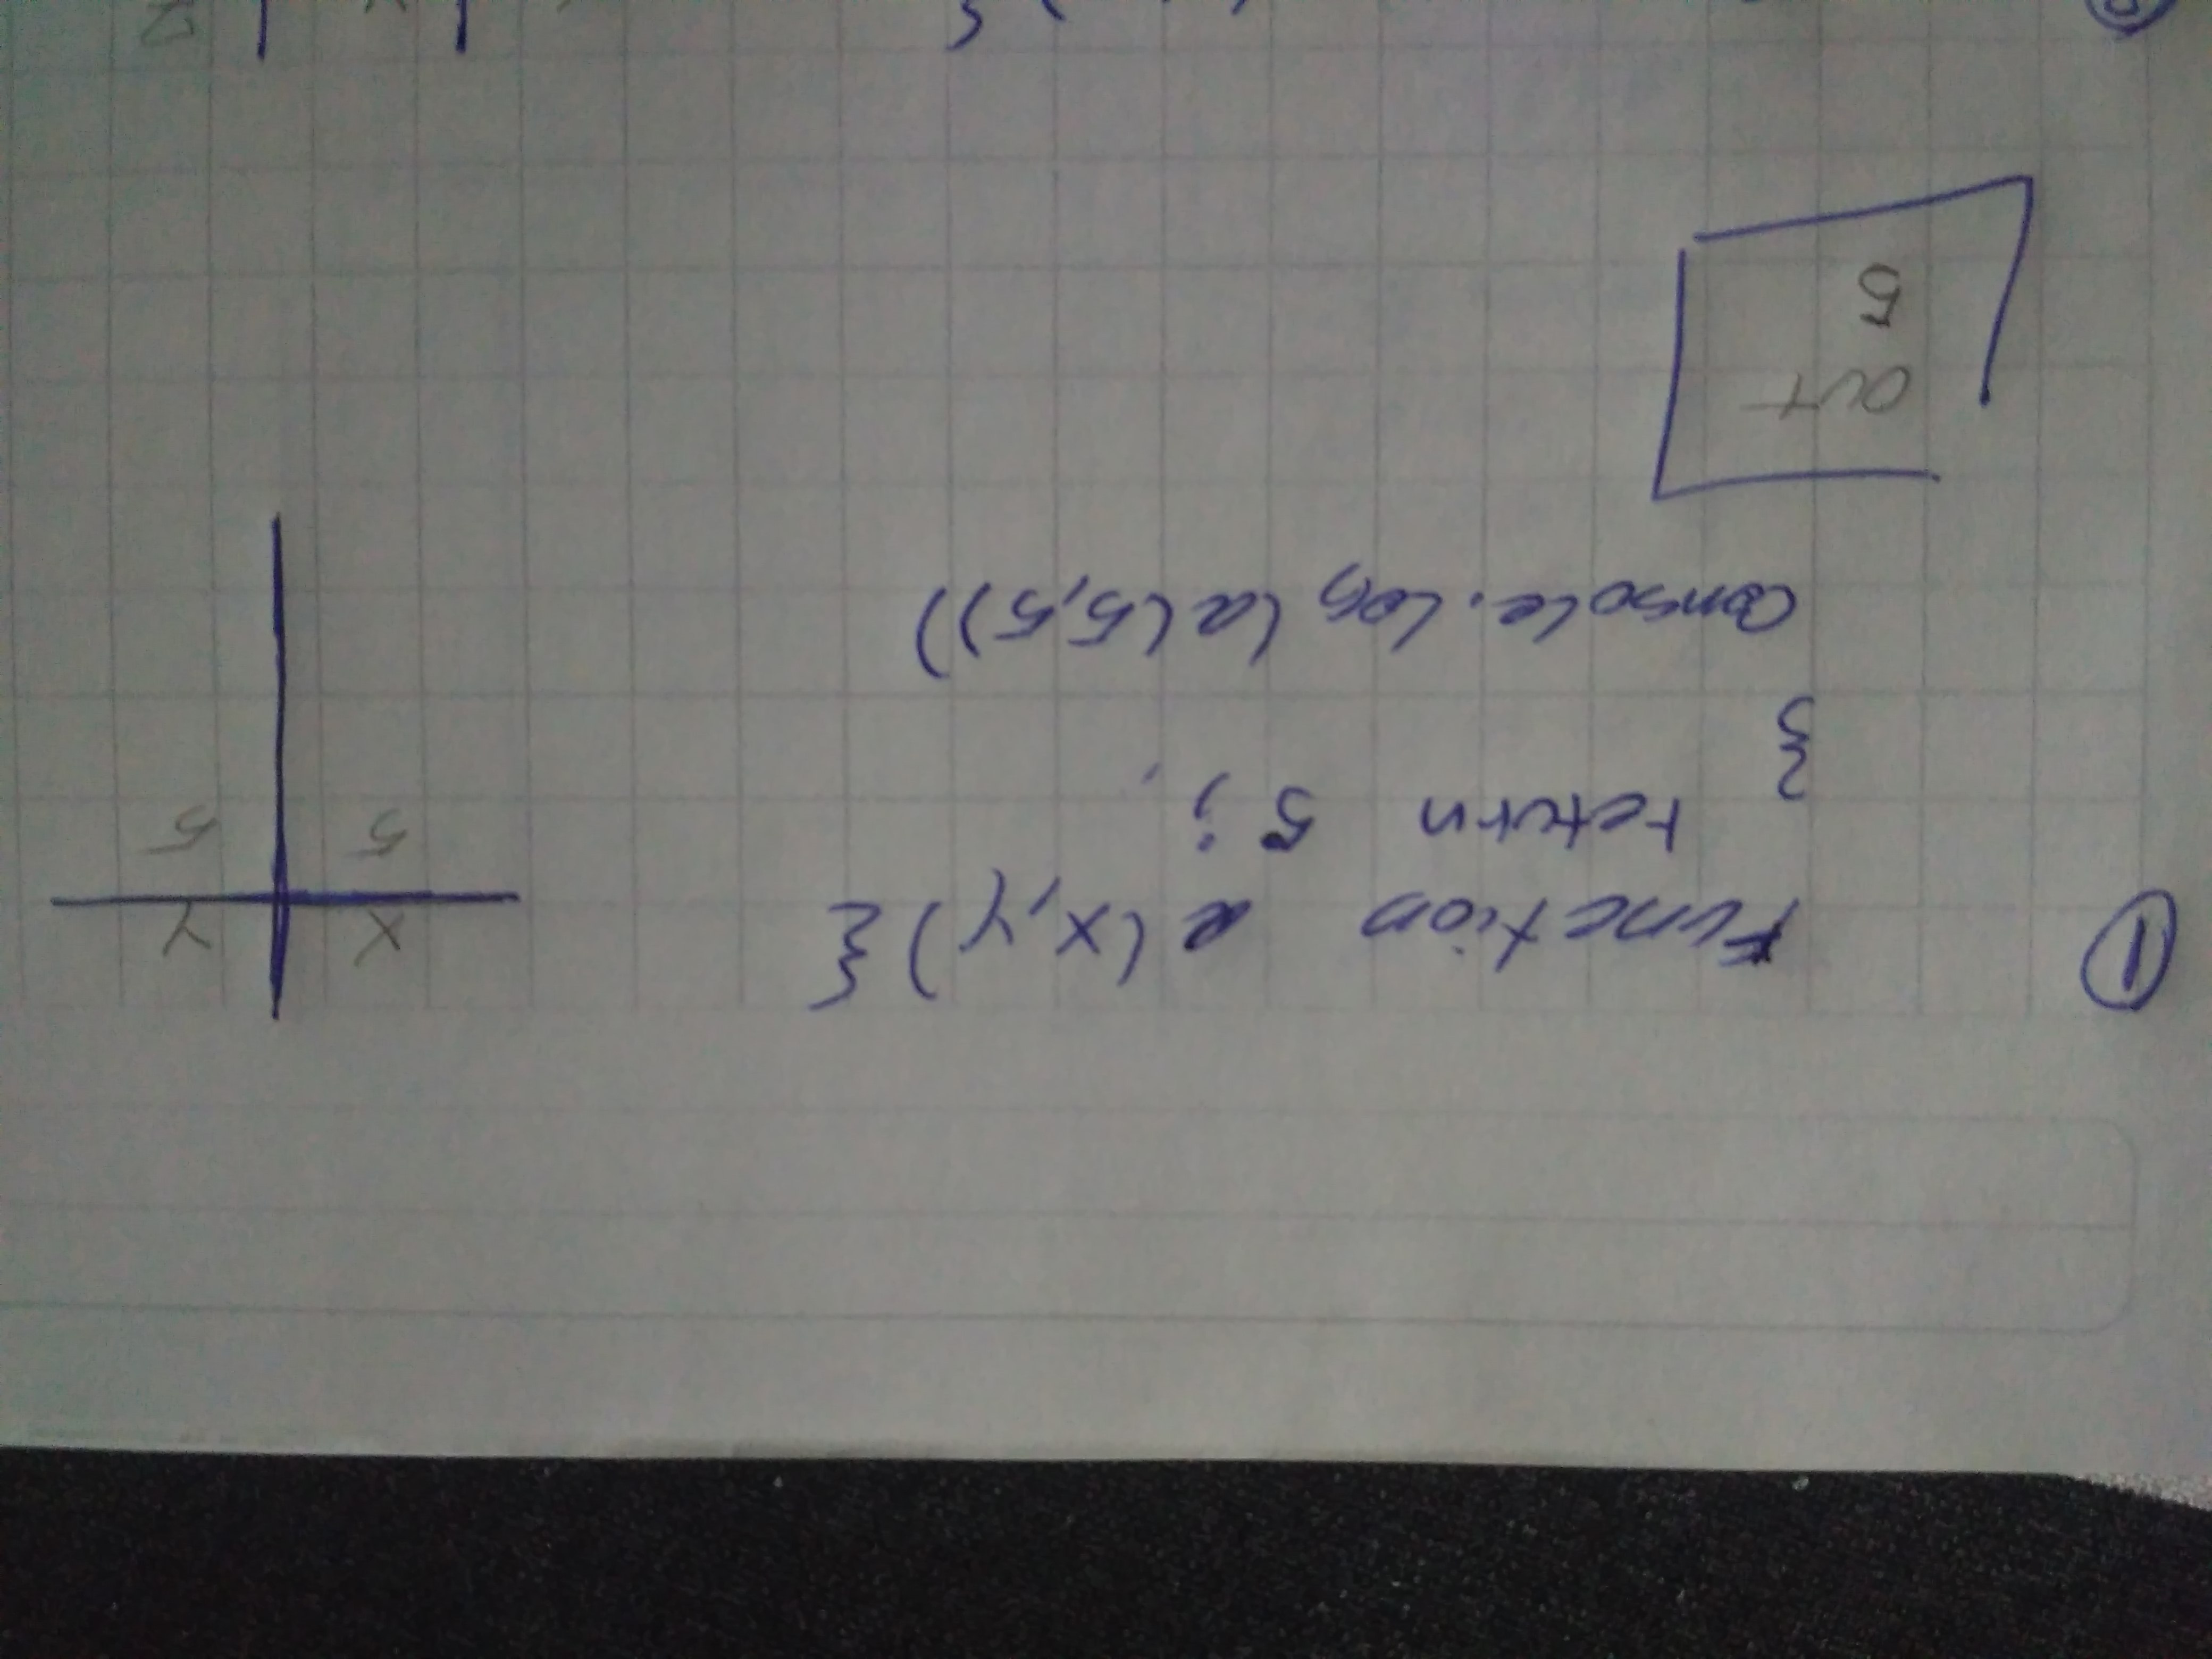 ① Function a(x,y){
return 5;
}
console.log(a(5,5))
OUT
5
X Y
5 5